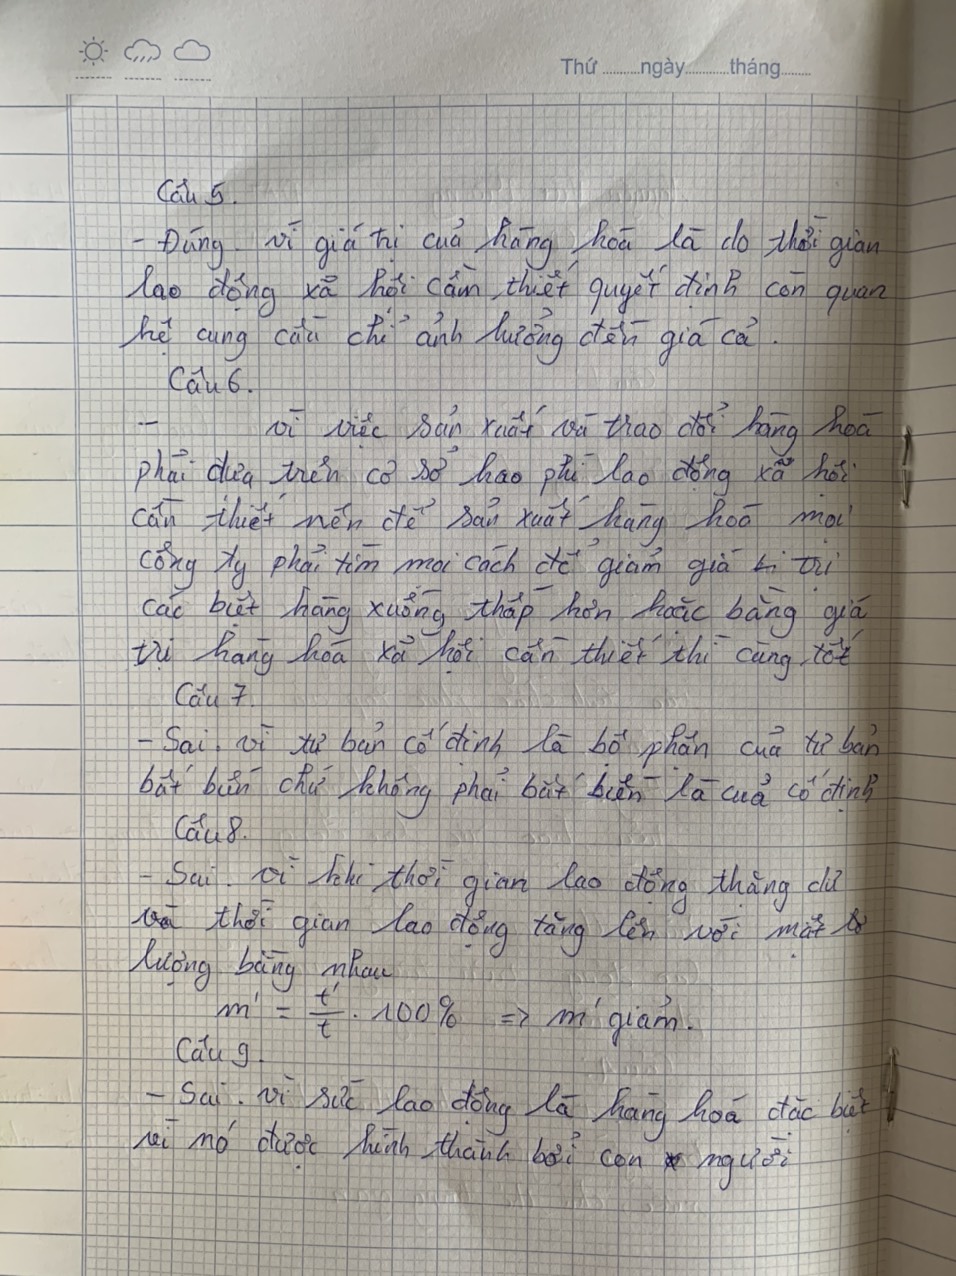 Thứ ..........ngày...........tháng........
Câu 5.
- Đúng. vì giá trị của hàng hoá là do thời gian
lao động xã hội cần thiết quyết định còn quan
hệ cung cầu chỉ ảnh hưởng đến giá cả.
Câu 6.
- vì việc sản xuất và trao đổi hàng hoá
phải dựa trên cơ sở hao phí lao động xã hội
cần thiết nên để sản xuất hàng hoá mọi
công ty phải tìm mọi cách để giảm giá trị
các biệt hàng xuống thấp hơn hoặc bằng giá
trị hàng hóa xã hội cần thiết thì càng tốt
Câu 7.
- Sai. vì tư bản cố định là bộ phận của tư bản
bất biến chứ không phải bất biến là của cố định
Câu 8.
- Sai. vì khi thời gian lao động thặng dư
và thời gian lao động tăng lên với một số
lượng bằng nhau
m' = t'/t . 100% => m' giảm.
Câu 9.
- Sai. vì sức lao động là hàng hoá đặc biệt
vì nó được hình thành bởi con người